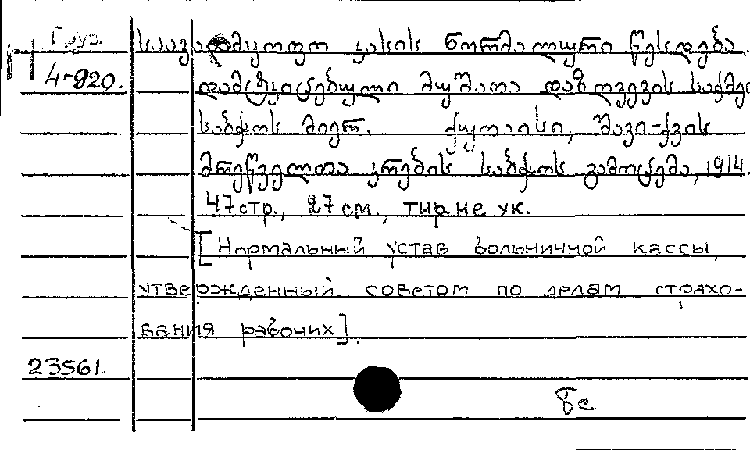 Груз. საავადმყოფო კასის ნორმალური წესდება
4-920. დამტკიცებული მუშათა დაზღვევის საქმეთ
საბჭოს მიერ. ქუთაისი, შავი-ქვის
მრეწველთა კრების საბჭოს გამოცემა, 1914.
47 стр., 27 см., тир не ук.
[Нормальный устав больничной кассы,
утвержденный советом по делам страхо-
вания рабочих].
23561.